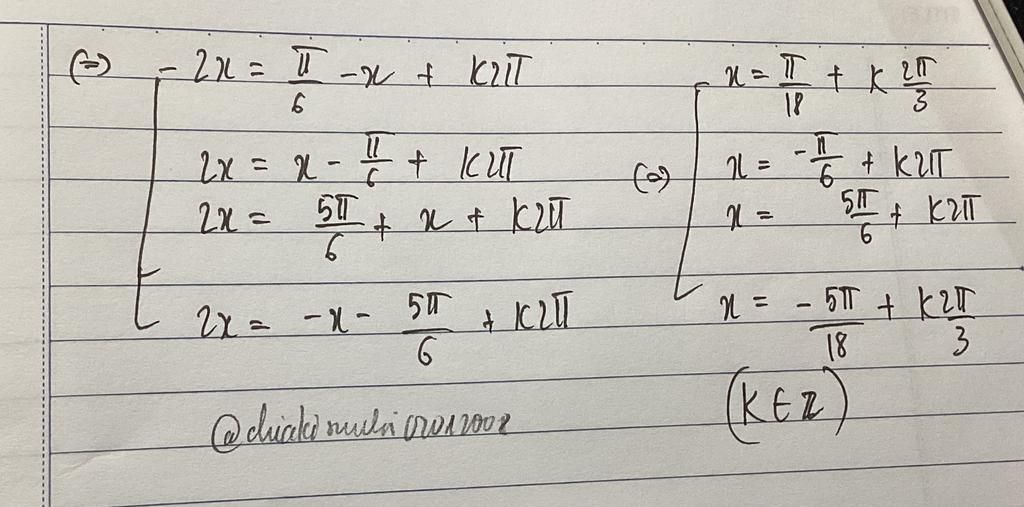 (=) 2x = π/6 - x + k2π
2x = x - π/6 + k2π
2x = 5π/6 + x + k2π
2x = -x - 5π/6 + k2π
(=) x = π/18 + k 2π/3
x = -π/6 + k2π
x = 5π/6 + k2π
x = -5π/18 + k2π/3
(k ∈ Z)